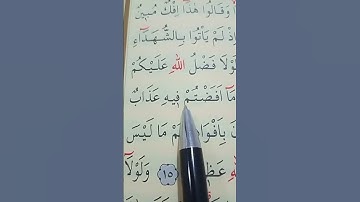 وَقَالُوا هٰذَٓا اِفْكٌ مُب۪ينٌ
اِذْ لَمْ يَأْتُوا بِالشُّهَدَٓاءِ
لَوْلَا فَضْلُ اللّٰهِ عَلَيْكُمْ
مَٓا اَفَضْتُمْ ف۪يهِ عَذَابٌ
بِاَفْوَا مَا لَيْسَ
﴿١٥﴾ وَلَوْلَٓا